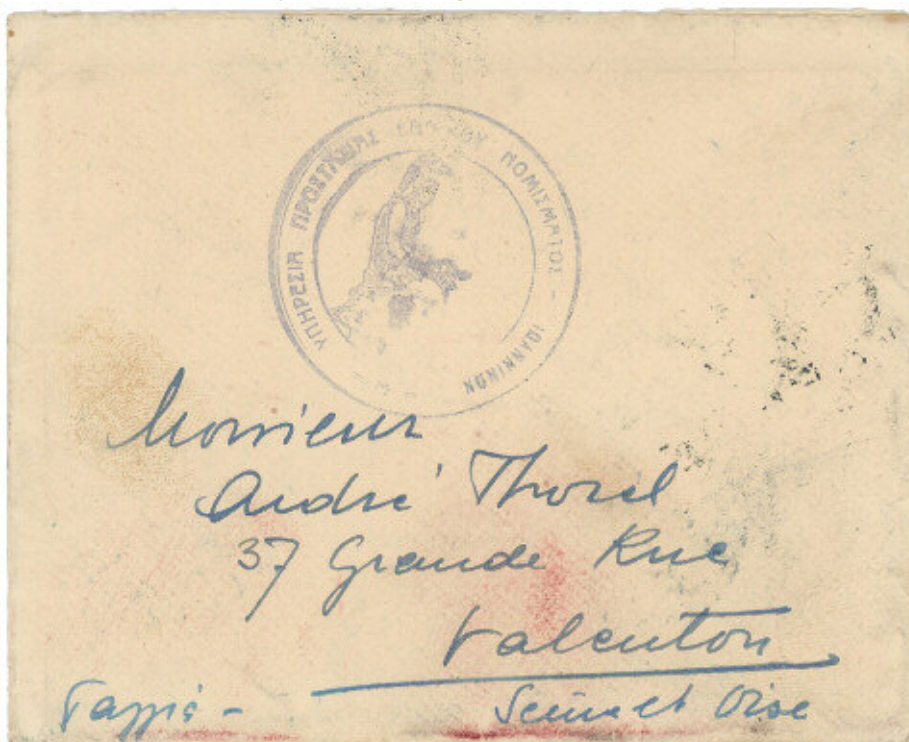 ΥΠΗΡΕΣΙΑ ΠΡΟΣΤΑΣΙΑΣ ΕΘΝΙΚΟΥ ΝΟΜΙΣΜΑΤΟΣ - ΙΩΑΝΝΙΝΩΝ
Monsieur
André Thorel
37 Grande Rue
Valenton
Γαλλία -
Seine et Oise